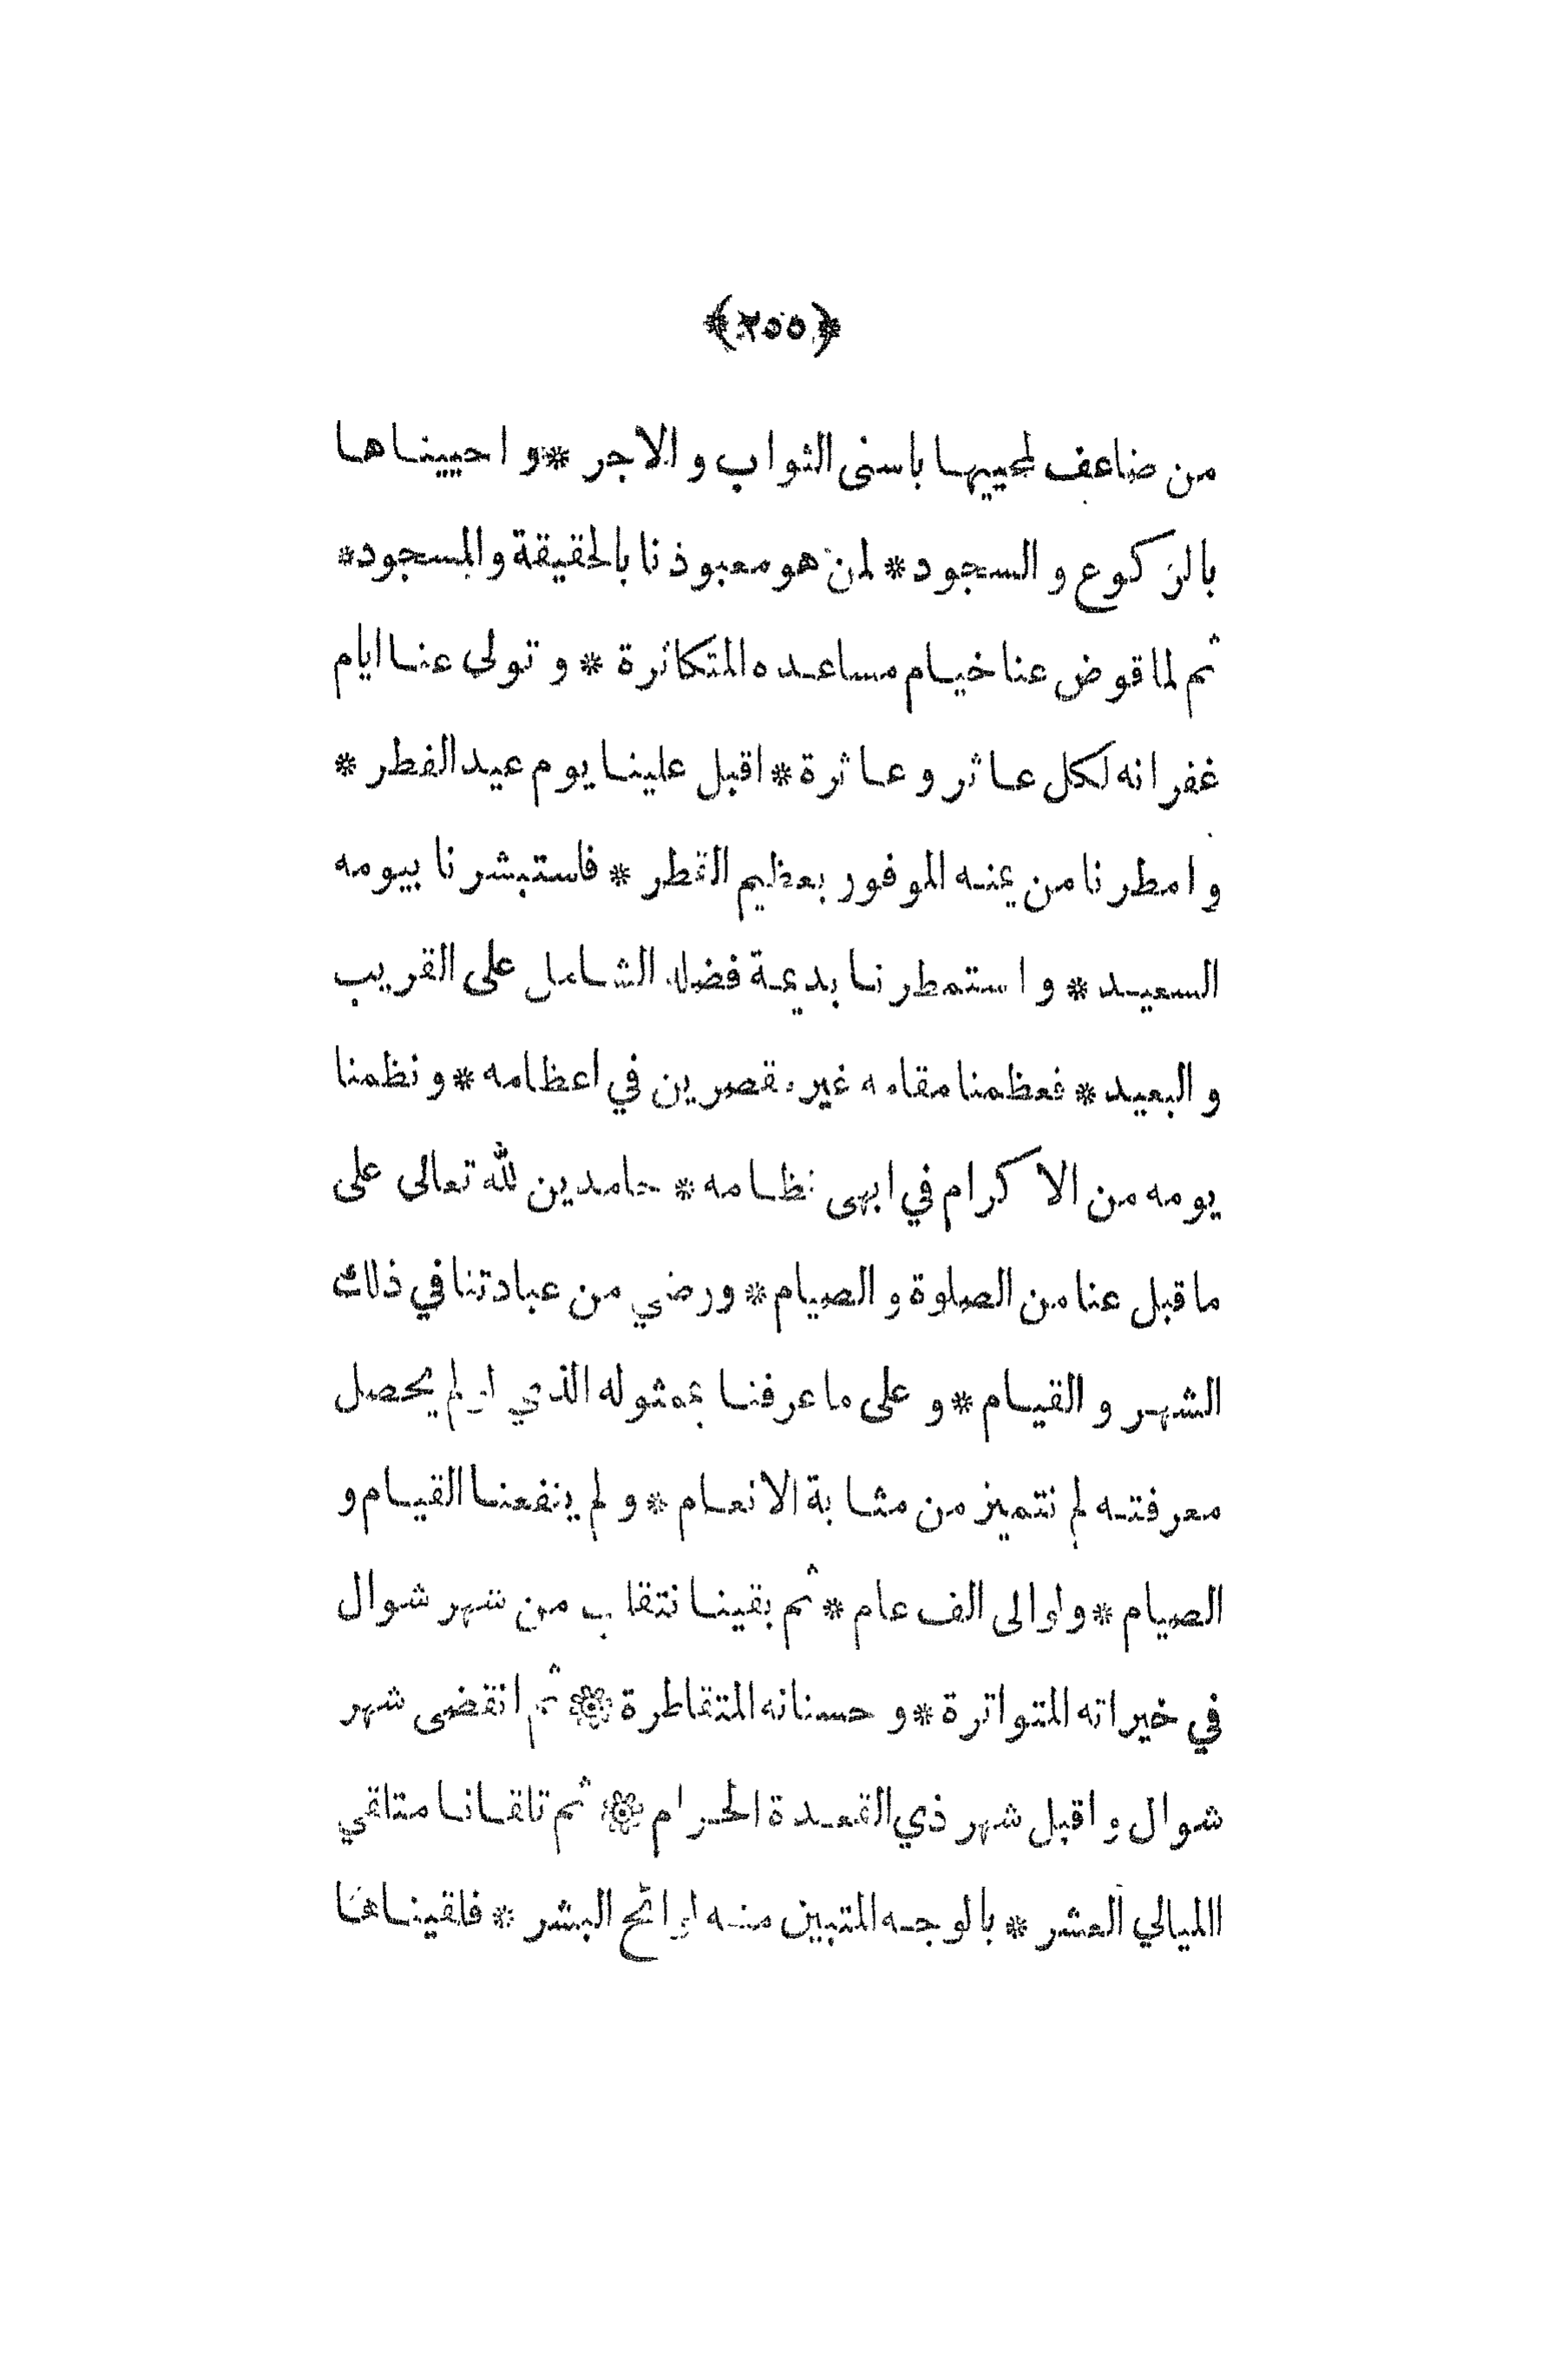 ﴿٢٥٥﴾
من ضاعف لمحييها باسنى الثواب والاجر * واحييناها
بالركوع والسجود * لمن هو معبودنا بالحقيقة والمسجود *
ثم لما قوض عنا خيام مساعده المتكاثرة * وتولى عنا ايام
غفرانه لكل عاثر وعاثرة * اقبل علينا يوم عيد الفطر *
وامطرنا من يمنه الموفور بعظيم القطر * فاستبشرنا بيومه
السعيد * واستمطرنا بديمة فضله الشامل على القريب
والبعيد * فعظمنا مقامه غير مقصرين في اعظامه * ونظمنا
يومه من الاكرام في ابهى نظامه * حامدين لله تعالى على
ما قبل عنا من الصلوة والصيام * ورضي من عبادتنا في ذلك
الشهر والقيام * وعلى ما عرفنا بمثوله الذي لو لم يحصل
معرفته لم نتميز من مثابة الانعام * ولم ينفعنا القيام و
الصيام * ولو الى الف عام * ثم بقينا نتقلب من شهر شوال
في خيراته المتواترة * وحسناته المتقاطرة * ثم انقضى شهر
شوال واقبل شهر ذي القعدة الحرام * ثم تلقانا متلقي
الليالي العشر * بالوجه المتبين منه لوائح البشر * فلقيناها